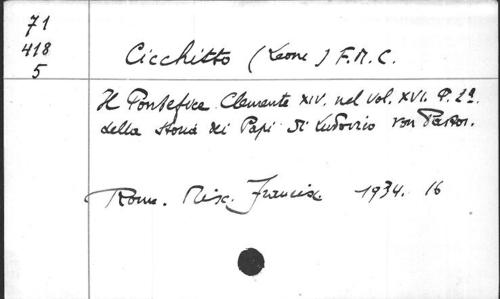 71
418
5
Cicchitto (Leone) F.M.C.
Il Pontefice Clemente XIV. nel vol. XVI. P. 2ª.
della storia dei Papi di Ludovico von Pastor.
Roma. Misc. Francesc. 1934. 16